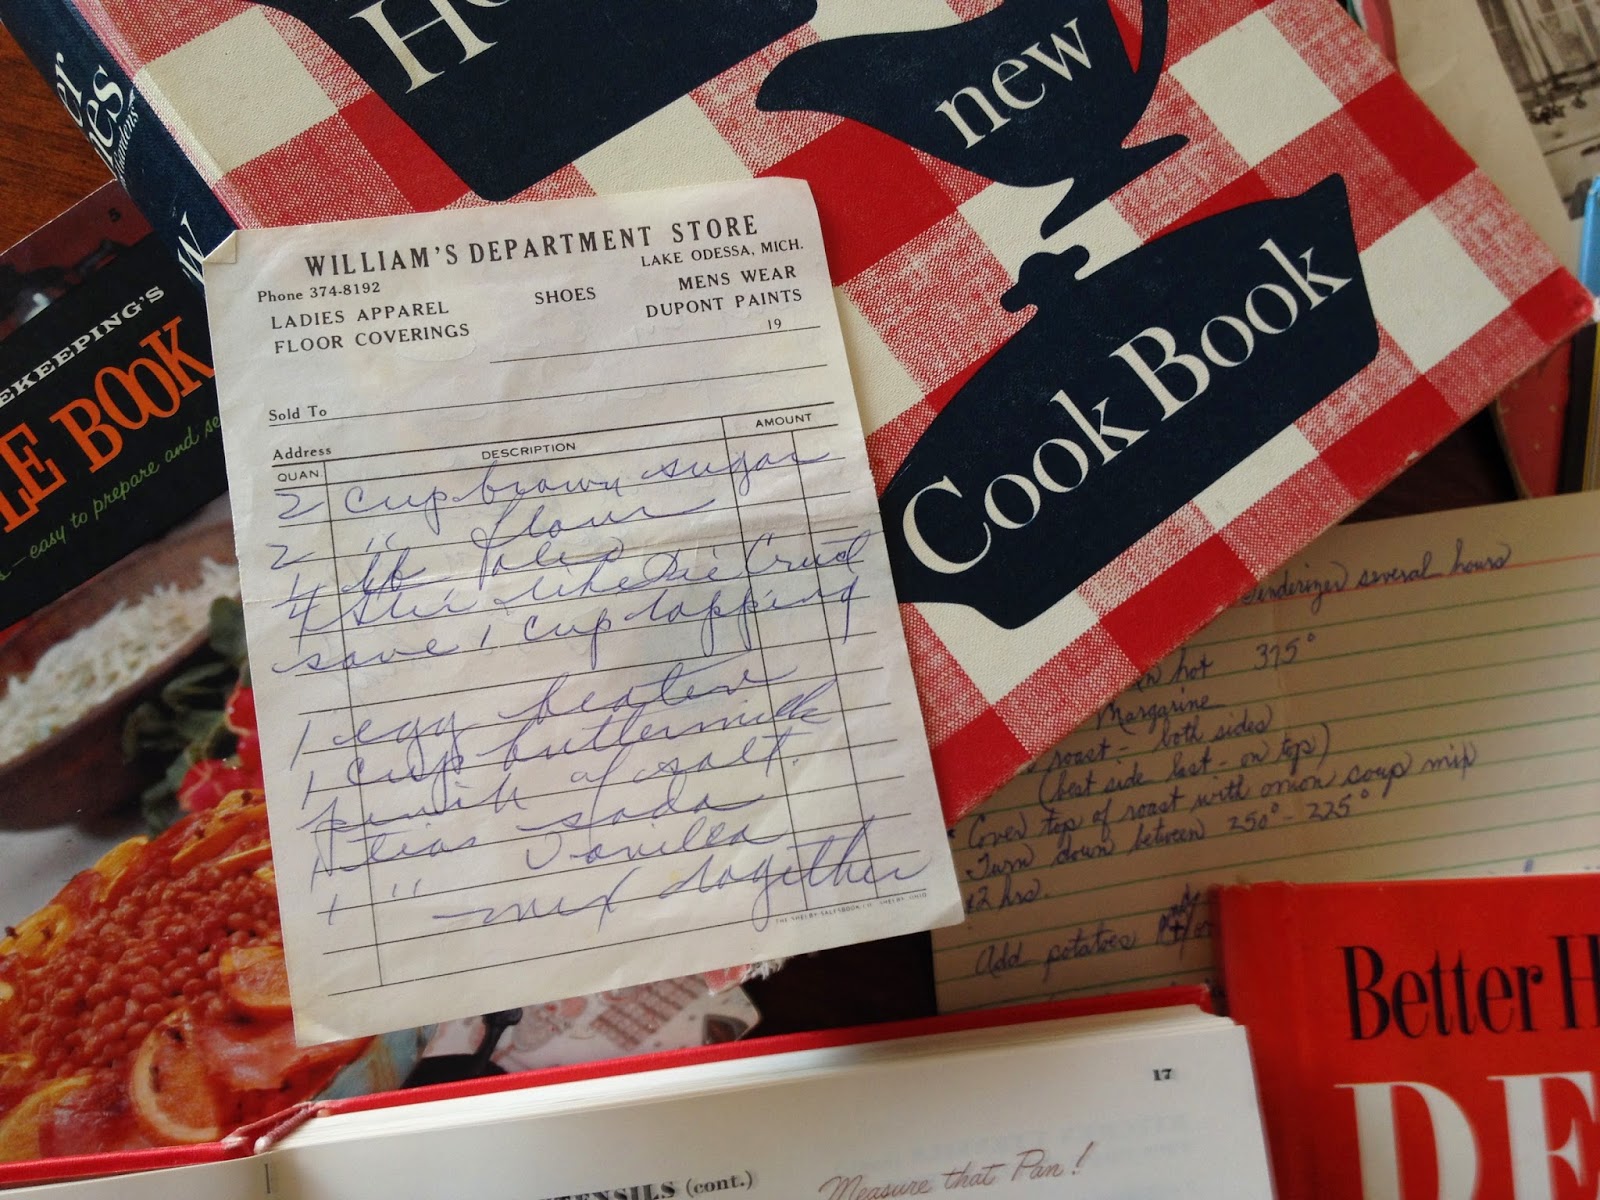 Ho
new
Cook Book
er
es
Gardens
W
5
EKEEPING'S
LE BOOK
s—easy to prepare and se
WILLIAM'S DEPARTMENT STORE
LAKE ODESSA, MICH.
Phone 374-8192
LADIES APPAREL SHOES MENS WEAR
FLOOR COVERINGS DUPONT PAINTS
19
Sold To
Address
QUAN DESCRIPTION AMOUNT
2 cup brown sugar
2 " flour
1/4 lb oleo
stir like Pie Crust
save 1 cup topping
1 egg beaten
1 cup buttermilk
pinch of salt.
1 teas soda
1 " Vanilla
mix together
THE SHELBY SALESBOOK CO. SHELBY, OHIO
Tenderizer several hours
in hot 375°
Margarine
roast - both sides
(best side last - on top)
Cover top of roast with onion soup mix
Turn down between 250° - 225°
2 hrs.
Add potatoes
17
TENSILS (cont.)
Measure that Pan!
Better H
DE